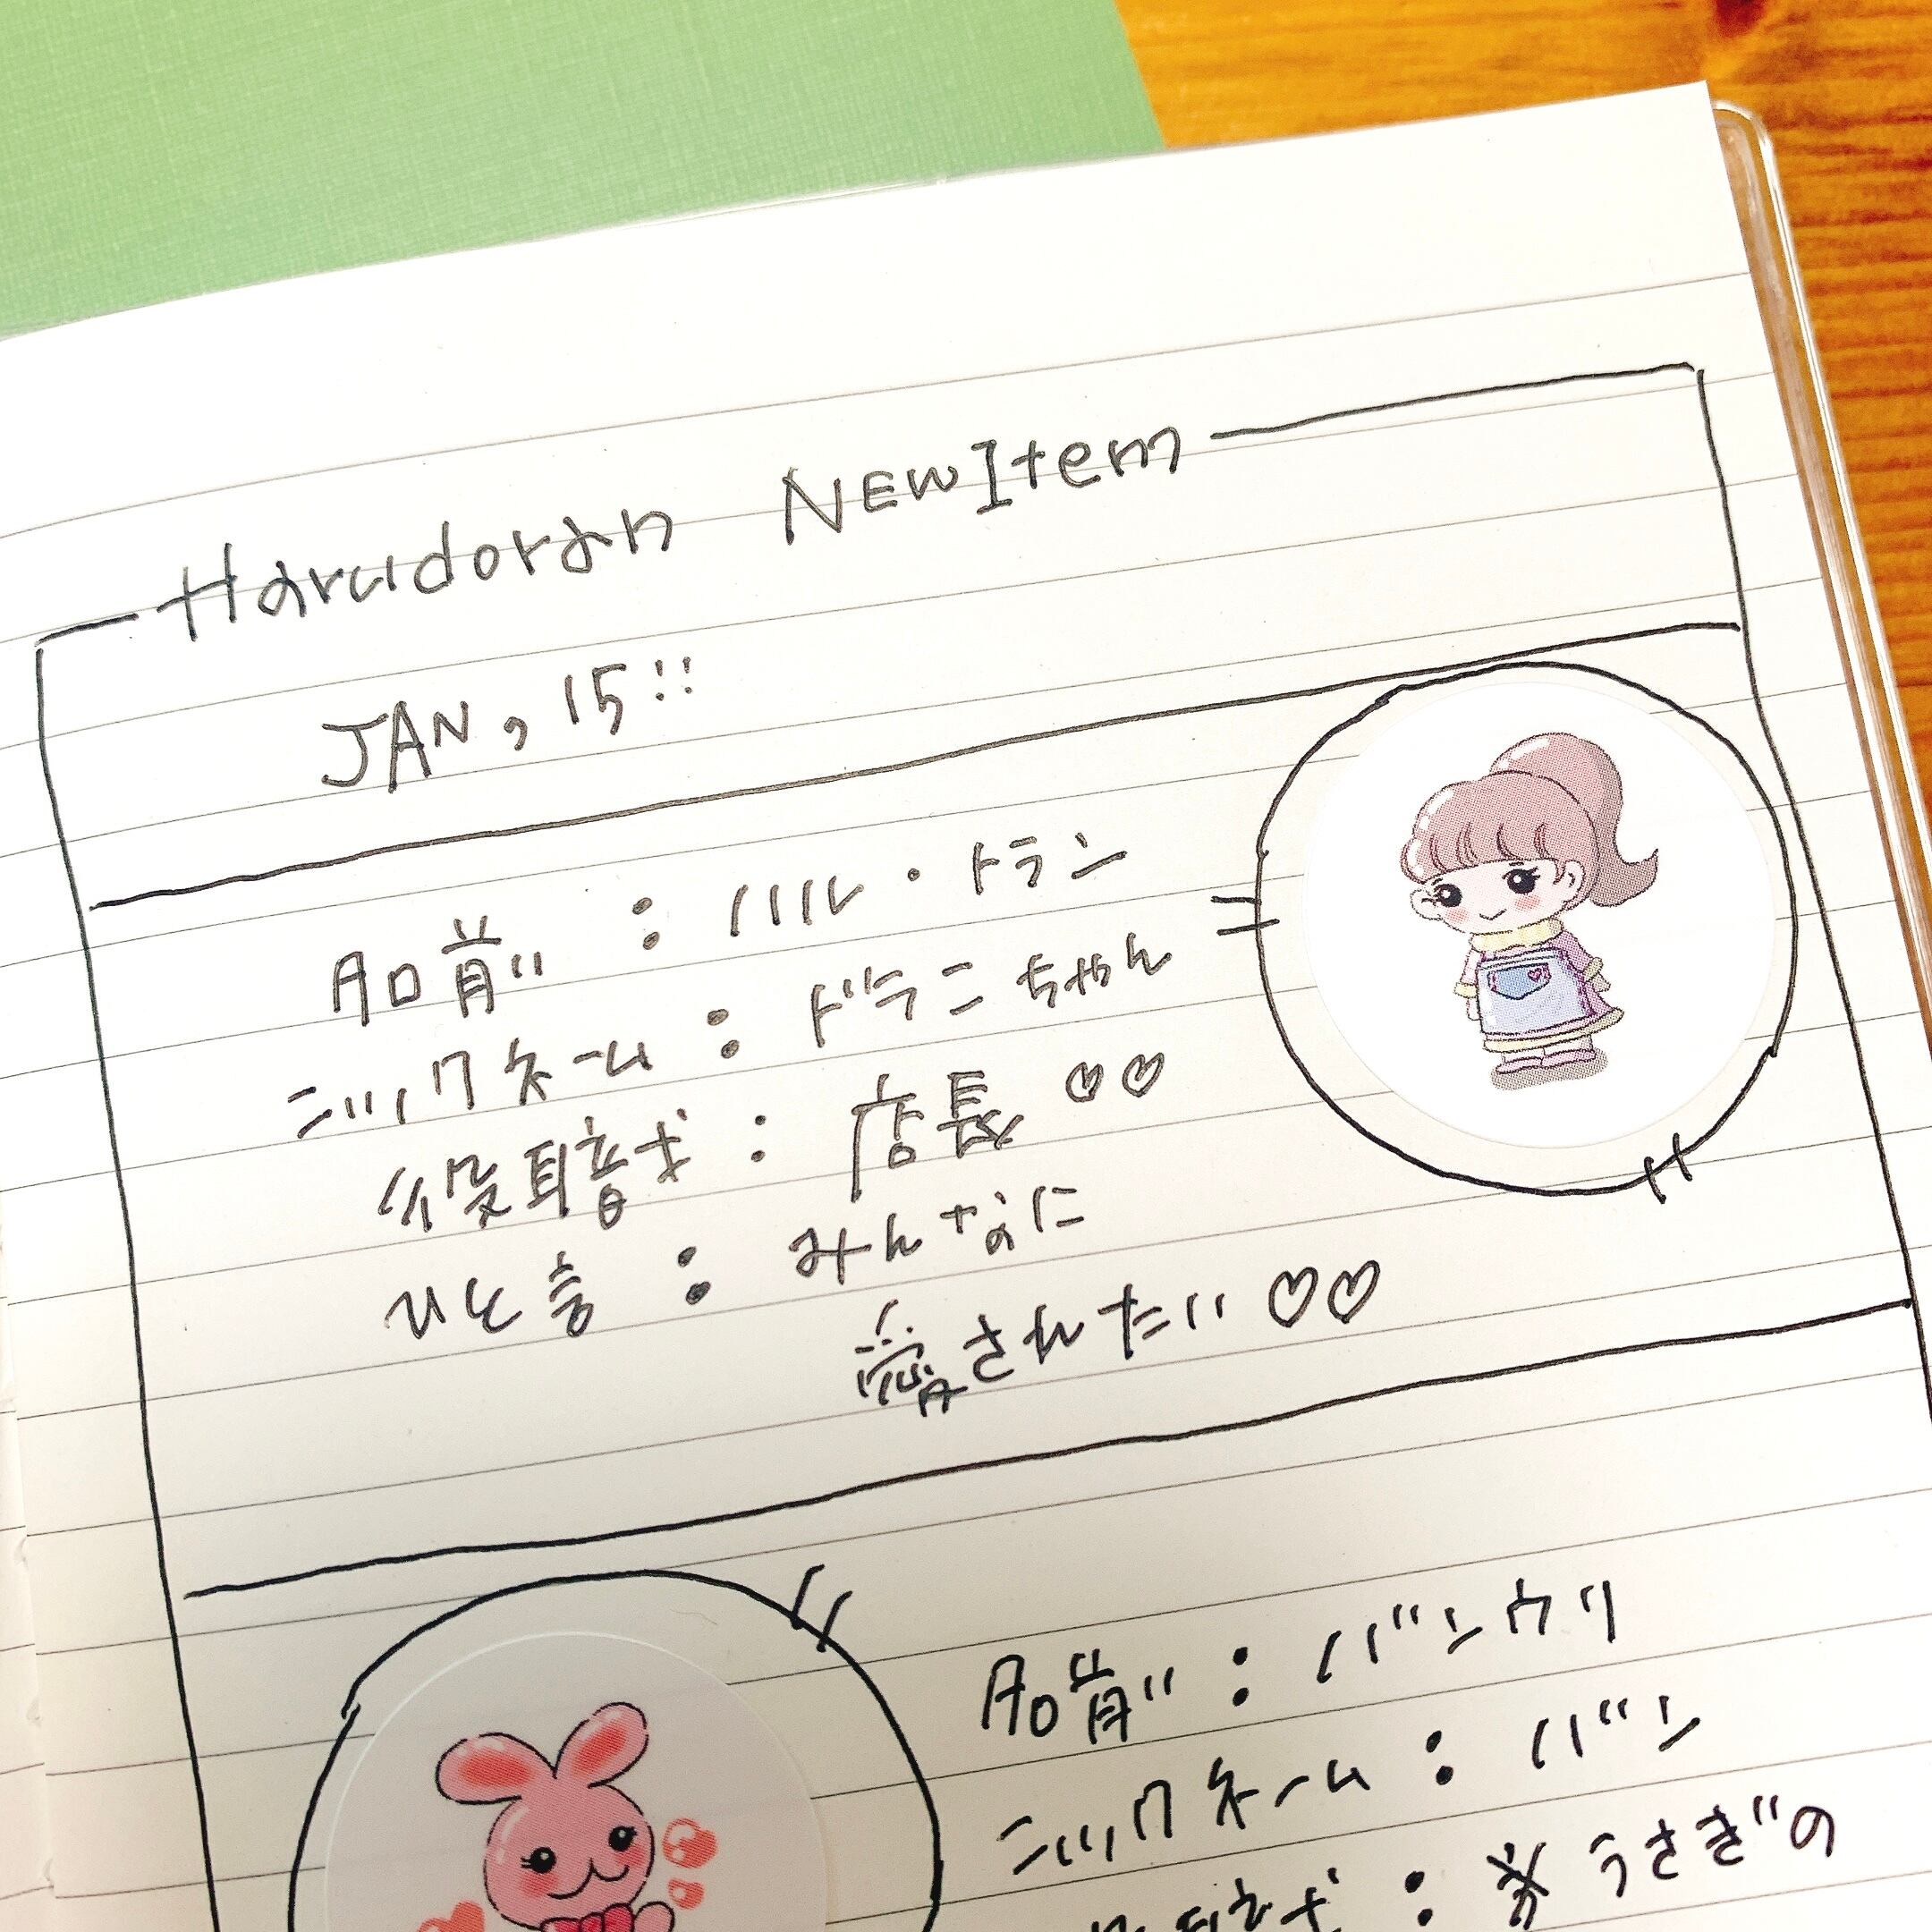 Harudoran NEW Item
JAN, 15!!
名前 : ハル・トラン
ニックネーム : ドラニちゃん
役職 : 店長♡♡
ひと言 : みんなに
愛されたい♡♡
名前 : バンウリ
ニックネーム : バン
役職 : うさぎの